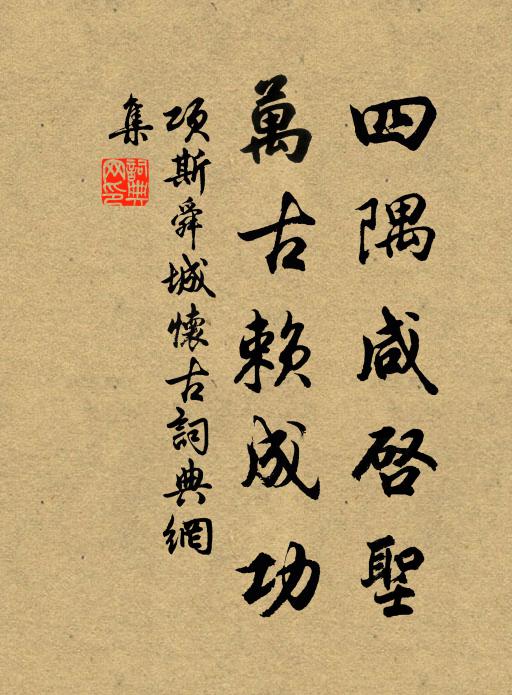 四隅咸啓聖
萬古賴成功
項斯舜城懷古詞典網
集
詞典
网印